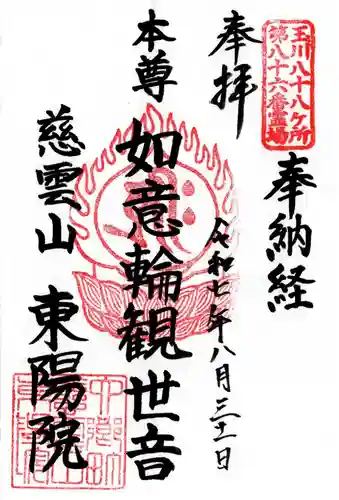 玉川八十八ケ所
第八十六番霊場
奉拝
奉納経
令和七年八月三十一日
本尊
如意輪観世音
慈雲山
東陽院